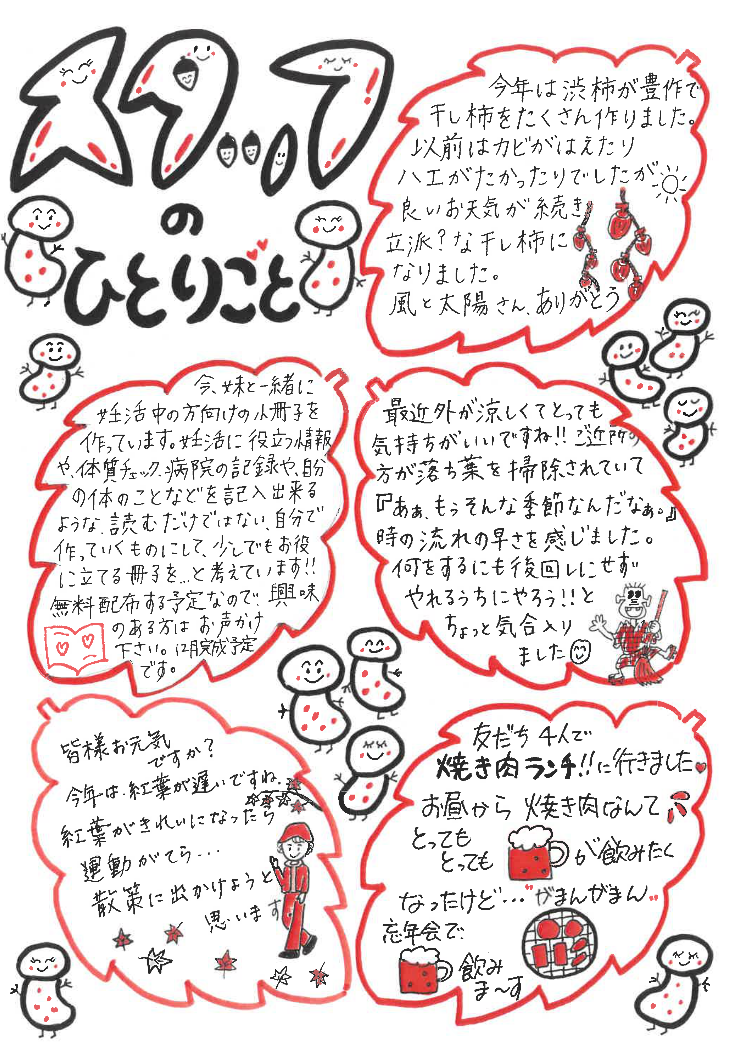 スタッフ
の
ひとりごと
今年は渋柿が豊作で
干し柿をたくさん作りました。
以前はカビがはえたり
ハエがたかったりでしたが
良いお天気が続き
立派?な干し柿に
なりました。
風と太陽さん、ありがとう
今、妹と一緒に
妊活中の方向けの小冊子を
作っています。妊活に役立つ情報
や、体質チェック、病院の記録や、自分
の体のことなどを記入出来る
ような、読むだけではない、自分で
作っていくものにして、少しでもお役
に立てる冊子を…と考えています!!
無料配布する予定なので、興味
のある方は お声かけ
下さい。12月完成予定
です。
最近外が涼しくてとっても
気持ちがいいですね!!ご近所の
方が落ち葉を掃除されていて
『あぁ、もうそんな季節なんだなぁ。』
時の流れの早さを感じました。
何をするにも後回しにせず
やれるうちにやろう!!と
ちょっと気合入り
ました
皆様お元気
ですか?
今年は、紅葉が遅いですね、
紅葉がきれいになったら
運動がてら…
散策に出かけようと
思います
友だち4人で
焼き肉ランチ!!に行きました
お昼から 焼き肉なんて
とっても
とっても
が飲みたく
なったけど…"がまんがまん"
忘年会で
飲み
ま〜す